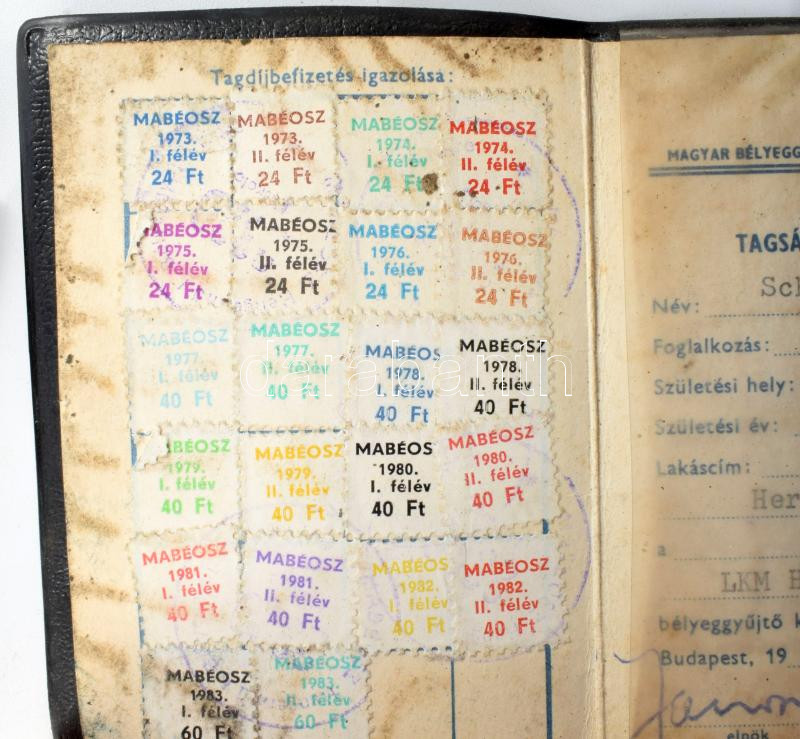 Tagdíjbefizetés igazolása:
MABÉOSZ
1973.
I. félév
24 Ft
MABÉOSZ
1973.
II. félév
24 Ft
MABÉOSZ
1974.
I. félév
24 Ft
MABÉOSZ
1974.
II. félév
24 Ft
ABÉOSZ
1975.
I. félév
24 Ft
MABÉOSZ
1975.
II. félév
24 Ft
MABÉOSZ
1976.
I. félév
24 Ft
MABÉOSZ
1976.
II. félév
24 Ft
MABÉOSZ
1977.
I. félév
40 Ft
MABÉOSZ
1977.
II. félév
40 Ft
MABÉOS
1978.
I. félév
40 Ft
MABÉOSZ
1978.
II. félév
40 Ft
ABÉOSZ
1979.
I. félév
40 Ft
MABÉOSZ
1979.
II. félév
40 Ft
MABÉOS
1980.
I. félév
40 Ft
MABÉOSZ
1980.
II. félév
40 Ft
MABÉOSZ
1981.
I. félév
40 Ft
MABÉOSZ
1981.
II. félév
40 Ft
MABÉOS
1982.
I. félév
40 Ft
MABÉOSZ
1982.
II. félév
40 Ft
MABÉOSZ
1983.
I. félév
60 Ft
MABÉOSZ
1983.
II. félév
60 Ft
MAGYAR BÉLYEGG
TAGSÁ
Sch
Név:
Foglalkozás:
Születési hely:
Születési év:
Lakáscím:
Her
a
LKM H
bélyeggyűjtő k
Budapest, 19
elnök
darabanth